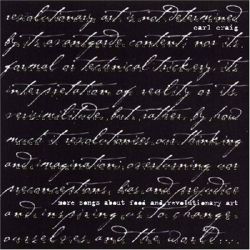 revolutionary art is not determined
carl craig
by its avantgarde content, nor its
formal or technical trickery, its
interpretation of reality or its
verisimilitude, but, rather, by how
much it revolutionizes our thinking
and imagination; overturning our
preconceptions, bias and prejudice
more songs about food and revolutionary art
and inspiring us to change
ourselves and the world....